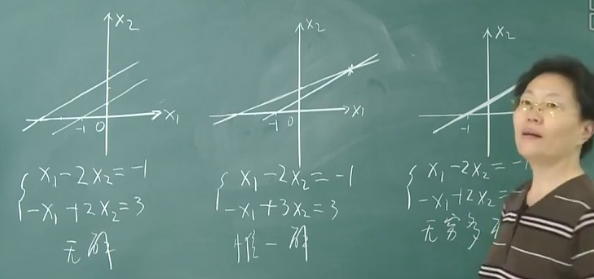 x₂
x₁
-1 0
x₁-2x₂=-1
-x₁+2x₂=3
无解
x₂
x₁
-1 0
x₁-2x₂=-1
-x₁+3x₂=3
惟一解
x₂
-1
x₁-2x₂=-1
-x₁+2x₂=
无穷多